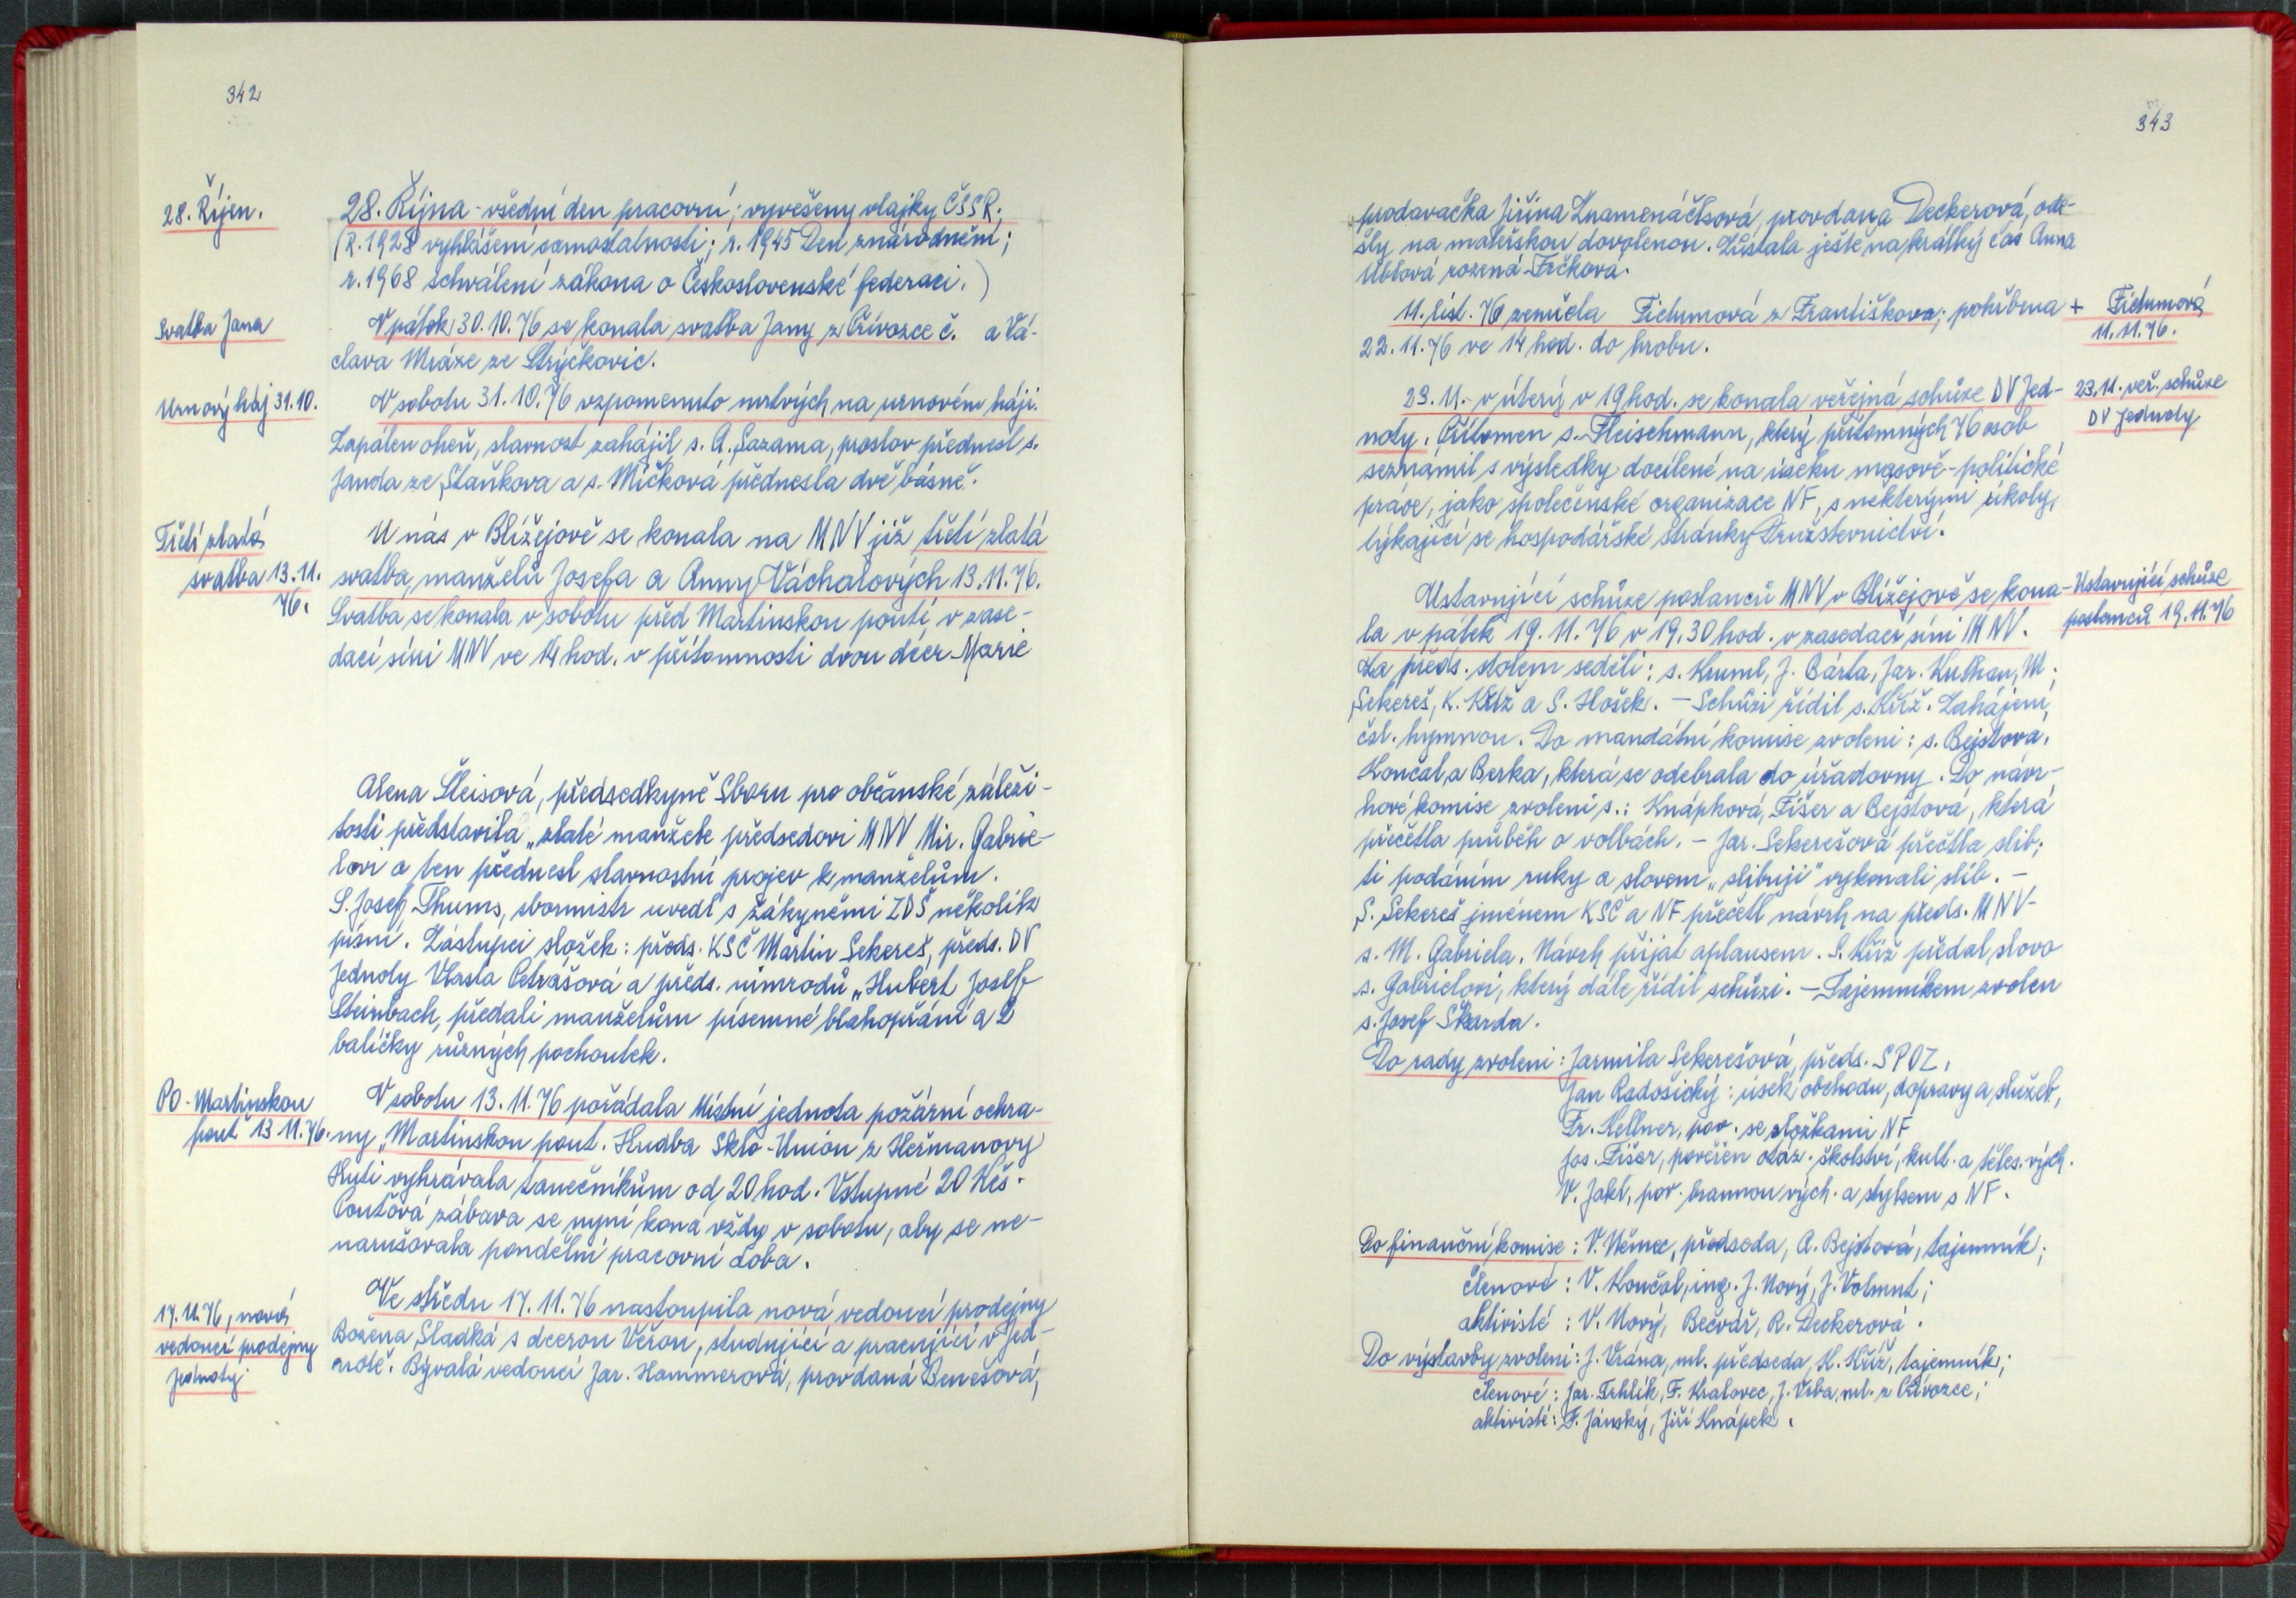 342
28. Říjen.
28. Října - všední den pracovní; vyvěšeny vlajky ČSSR;
(R. 1928 vyhlášení samostatnosti; r. 1945 Den znárodnění;
r. 1968 schválení zákona o Československé federaci.)
Svatba Jana
V pátek 30.10.76 se konala svatba Jany z Přívozce č. a Vá-
clava Mráze ze Strýčkovic.
Urnový háj 31.10.
V sobotu 31.10.76 vzpomenuto mrtvých na urnovém háji.
Zapálen oheň, slavnost zahájil s. A. Sazama, proslov přednesl s.
Janda ze Staňkova a s. Míčková přednesla dvě básně.
Třetí zlatá
svatba 13.11.
76.
U nás v Blížejově se konala na MNV již třetí zlatá
svatba, manželů Josefa a Anny Váchalových 13.11.76.
Svatba se konala v sobotu před Martinskou poutí, v zase-
dací síni MNV ve 14 hod. v přítomnosti dvou dcer Marie
Alena Šleisová, předsedkyně Sboru pro občanské záleži-
tosti představila "zlaté manžele předsedovi MNV Mir. Gabrie-
lovi a ten přednesl slavnostní projev k manželům.
S. Josef Thums, sbormistr uvedl s žákyněmi ZDŠ několik
písní. Zástupci složek: předs. KSČ Martin Sekereš, předs. DV
Jednoty Vlasta Petrášová a předs. nimrodů "Hubert Josef
Steinbach, předali manželům písemné blahopřání a 2
balíčky různých pochoutek.
PO - Martinskou
pout 13.11.76.
V sobotu 13.11.76 pořádala Místní jednota požární ochra-
ny "Martinskou pout. Hudba Sklo-Union z Heřmanovy
Huti vyhrávala tanečníkům od 20 hod. Vstupné 20 Kčs.
Pouťová zábava se nyní koná vždy v sobotu, aby se ne-
narušovala pondělní pracovní doba.
17.11.76, nová
vedoucí prodejny
Jednoty
Ve středu 17.11.76 nastoupila nová vedoucí prodejny
Božena Sladká s dcerou Věrou, studující a pracující v Jed-
notě. Bývalá vedoucí Jar. Hammerová, provdaná Benešová,
343
prodavačka Jiřina Znamenáčková, provdaná Deckerová, ode-
šly na mateřskou dovolenou. Zůstala ještě na krátký čas Anna
Ublová rozená Frčková.
11. list. 76 zemřela Fichumová z Františkova; pohřbena
22.11.76 ve 14 hod. do hrobu.
+ Fichumová
11.11.76.
23.11. v úterý v 19 hod. se konala veřejná schůze DV Jed-
noty. Přítomen s. Fleischmann, který přítomných 76 osob
seznámil s výsledky docílené na úseku masově-politické
práce, jako společenské organizace NF, s některými úkoly,
týkající se hospodářské stránky Družstevnictví.
23.11. veř. schůze
DV Jednoty
Ustavující schůze poslanců MNV v Blížejově se kona-
la v pátek 19.11.76 v 19.30 hod. v zasedací síni MNV.
Ustavující schůze
poslanců 19.11.76
Za předs. stolem seděli: s. Kuml, J. Bárta, Jar. Kuthan, M.
Sekereš, K. Kříž a S. Hošek. - Schůzi řídil s. Kříž. Zahájení
čsl. hymnou. Do mandátní komise zvoleni: s. Bejstová,
Končal a Berka, která se odebrala do úřadovny. Do návr-
hové komise zvoleni s.: Knápková, Fišer a Bejstová, která
přečetla průběh o volbách. - Jar. Sekerešová přečtla slib;
ti podáním ruky a slovem "slibuji" vykonali slib. -
S. Sekereš jménem KSČ a NF přečetl návrh na předs. MNV-
s. M. Gabriela. Návrh přijat aplausem. S. Kříž předal slovo
s. Gabrielovi, který dále řídil schůzi. - Tajemníkem zvolen
s. Josef Skarda.
Do rady zvoleni: Jarmila Sekerešová, předs. SPOZ,
Jan Radošický: úsek obchodu, dopravy a služeb,
Fr. Kellner, pov. se složkami NF
Jos. Fišer, pověřen otáz. školství, kult. a těles. vých.
V. Jakl, pov. brannou vých. a stykem s NF.
Do finanční komise: V. Němec, předseda, A. Bejstová, tajemník;
členové: V. Končal, ing. J. Nový, J. Volmut;
aktivisté: V. Nový, Bečvář, R. Deckerová.
Do výstavby zvoleni: J. Vrána, ml. předseda, K. Kříž, tajemník;
členové: Jar. Trhlík, F. Kralovec, J. Vrba, ml. z Přívozce;
aktivisté: F. Jánský, Jiří Knápek.